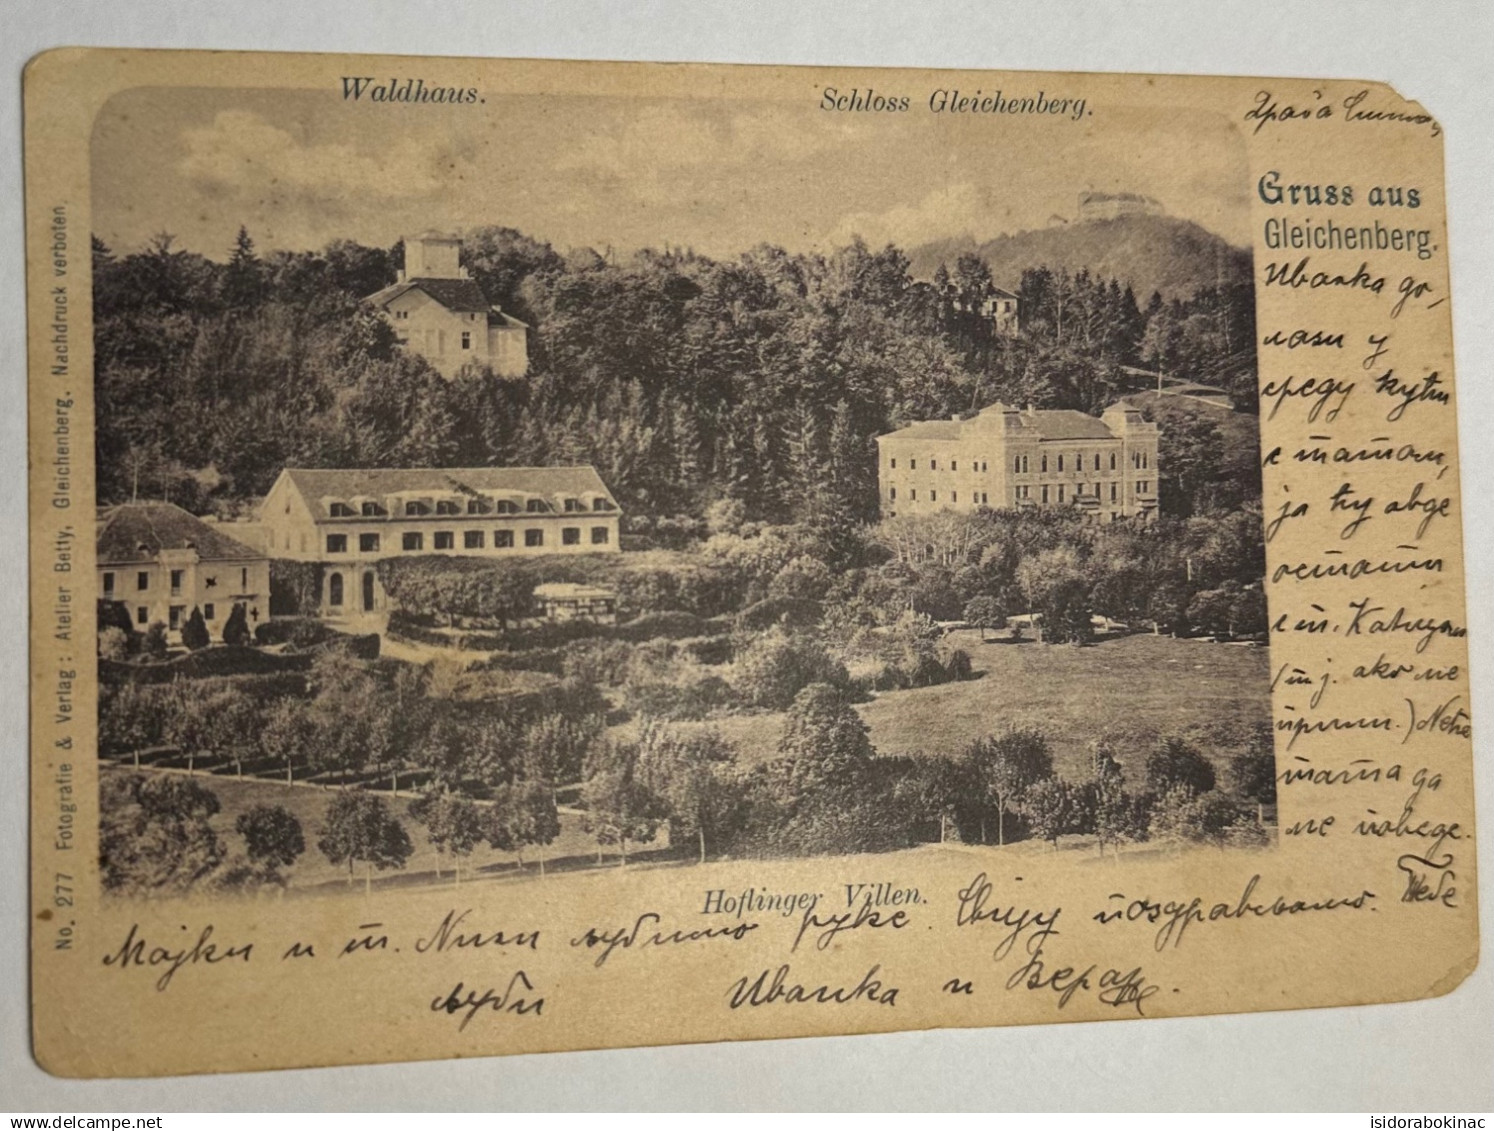 Waldhaus.
Schloss Gleichenberg.
Gruss aus
Gleichenberg.
Иванка до,
лази у
среду кући
с татом,
ја ћу овде
остати
с т.
(т.ј. ако не
Нека
тата да
не поведе.
Hoflinger Villen.
Мајки и т. љубимо руке. Свију поздрављамо. Тебе
љуби Иванка и
No. 277 Fotografie & Verlag: Atelier Betty, Gleichenberg. Nachdruck verboten.
isidorabokinac